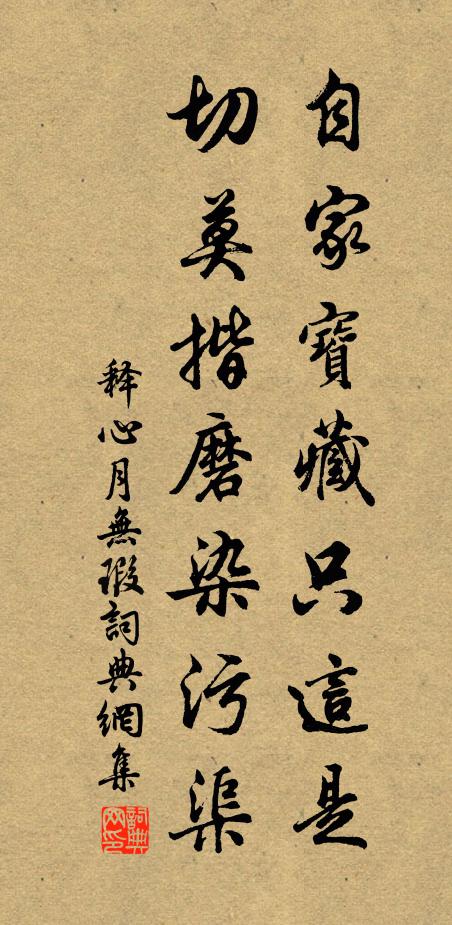 自家寶藏只這是
切莫揩磨染污渠
释心月無瑕詞典網集
詞典网印